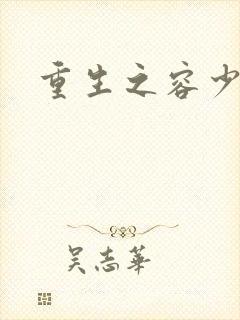 重生之容少
吴志华